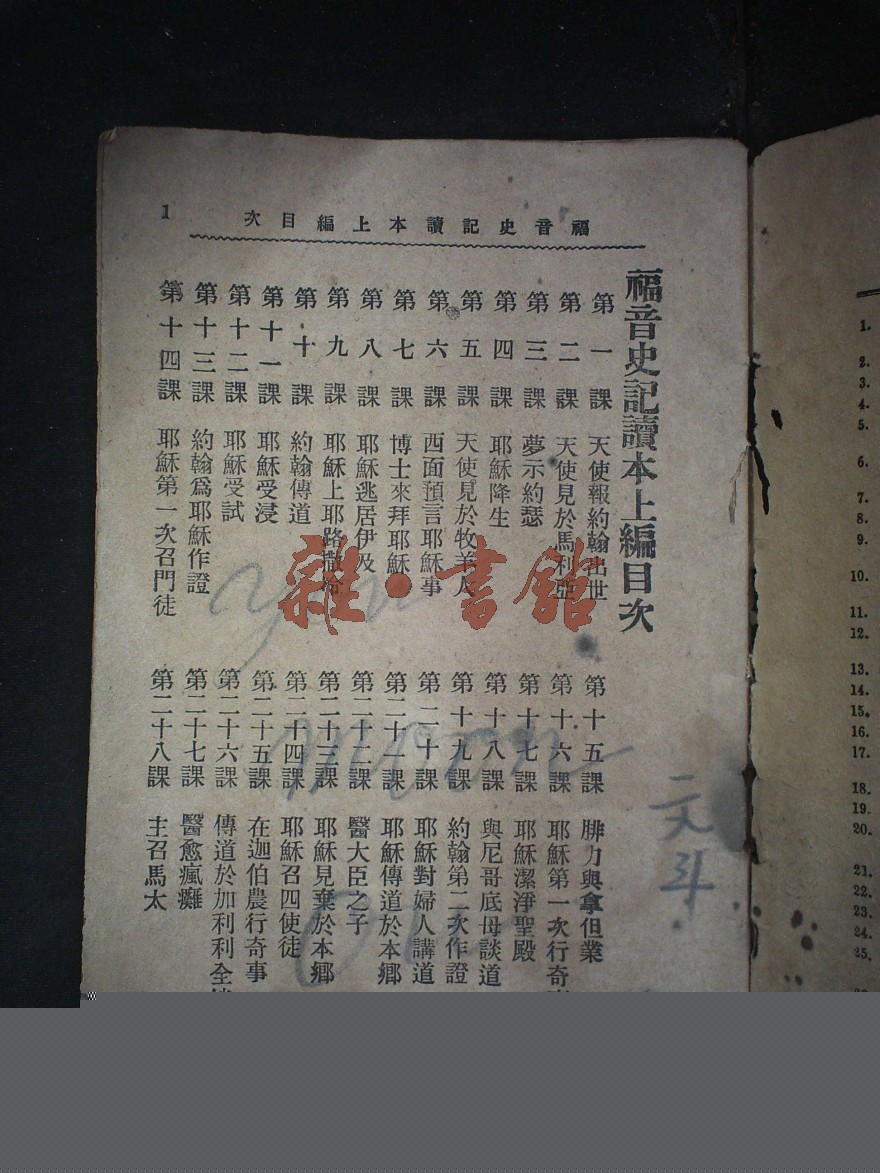 福音史記讀本上編目次
1
福音史記讀本上編目次
第一課 天使報約翰出世
第二課 天使見於馬利亞
第三課 夢示約瑟
第四課 耶穌降生
第五課 天使見於牧羊人
第六課 西面預言耶穌事
第七課 博士來拜耶穌
第八課 耶穌逃居伊及
第九課 耶穌上耶路撒冷
第十課 約翰傳道
第十一課 耶穌受浸
第十二課 耶穌受試
第十三課 約翰爲耶穌作證
第十四課 耶穌第一次召門徒
第十五課 腓力與拿但業
第十六課 耶穌第一次行奇
第十七課 耶穌潔淨聖殿
第十八課 與尼哥底母談道
第十九課 約翰第二次作證
第二十課 耶穌對婦人講道
第二十一課 耶穌傳道於本鄉
第二十二課 醫大臣之子
第二十三課 耶穌見棄於本鄉
第二十四課 耶穌召四使徒
第二十五課 在迦伯農行奇事
第二十六課 傳道於加利利全
第二十七課 醫愈瘋癱
第二十八課 主召馬太
雜·書館
1.
2.
3.
4.
5.
6.
7.
8.
9.
10.
11.
12.
13.
14.
15.
16.
17.
18.
19.
20.
21.
22.
23.
24.
25.